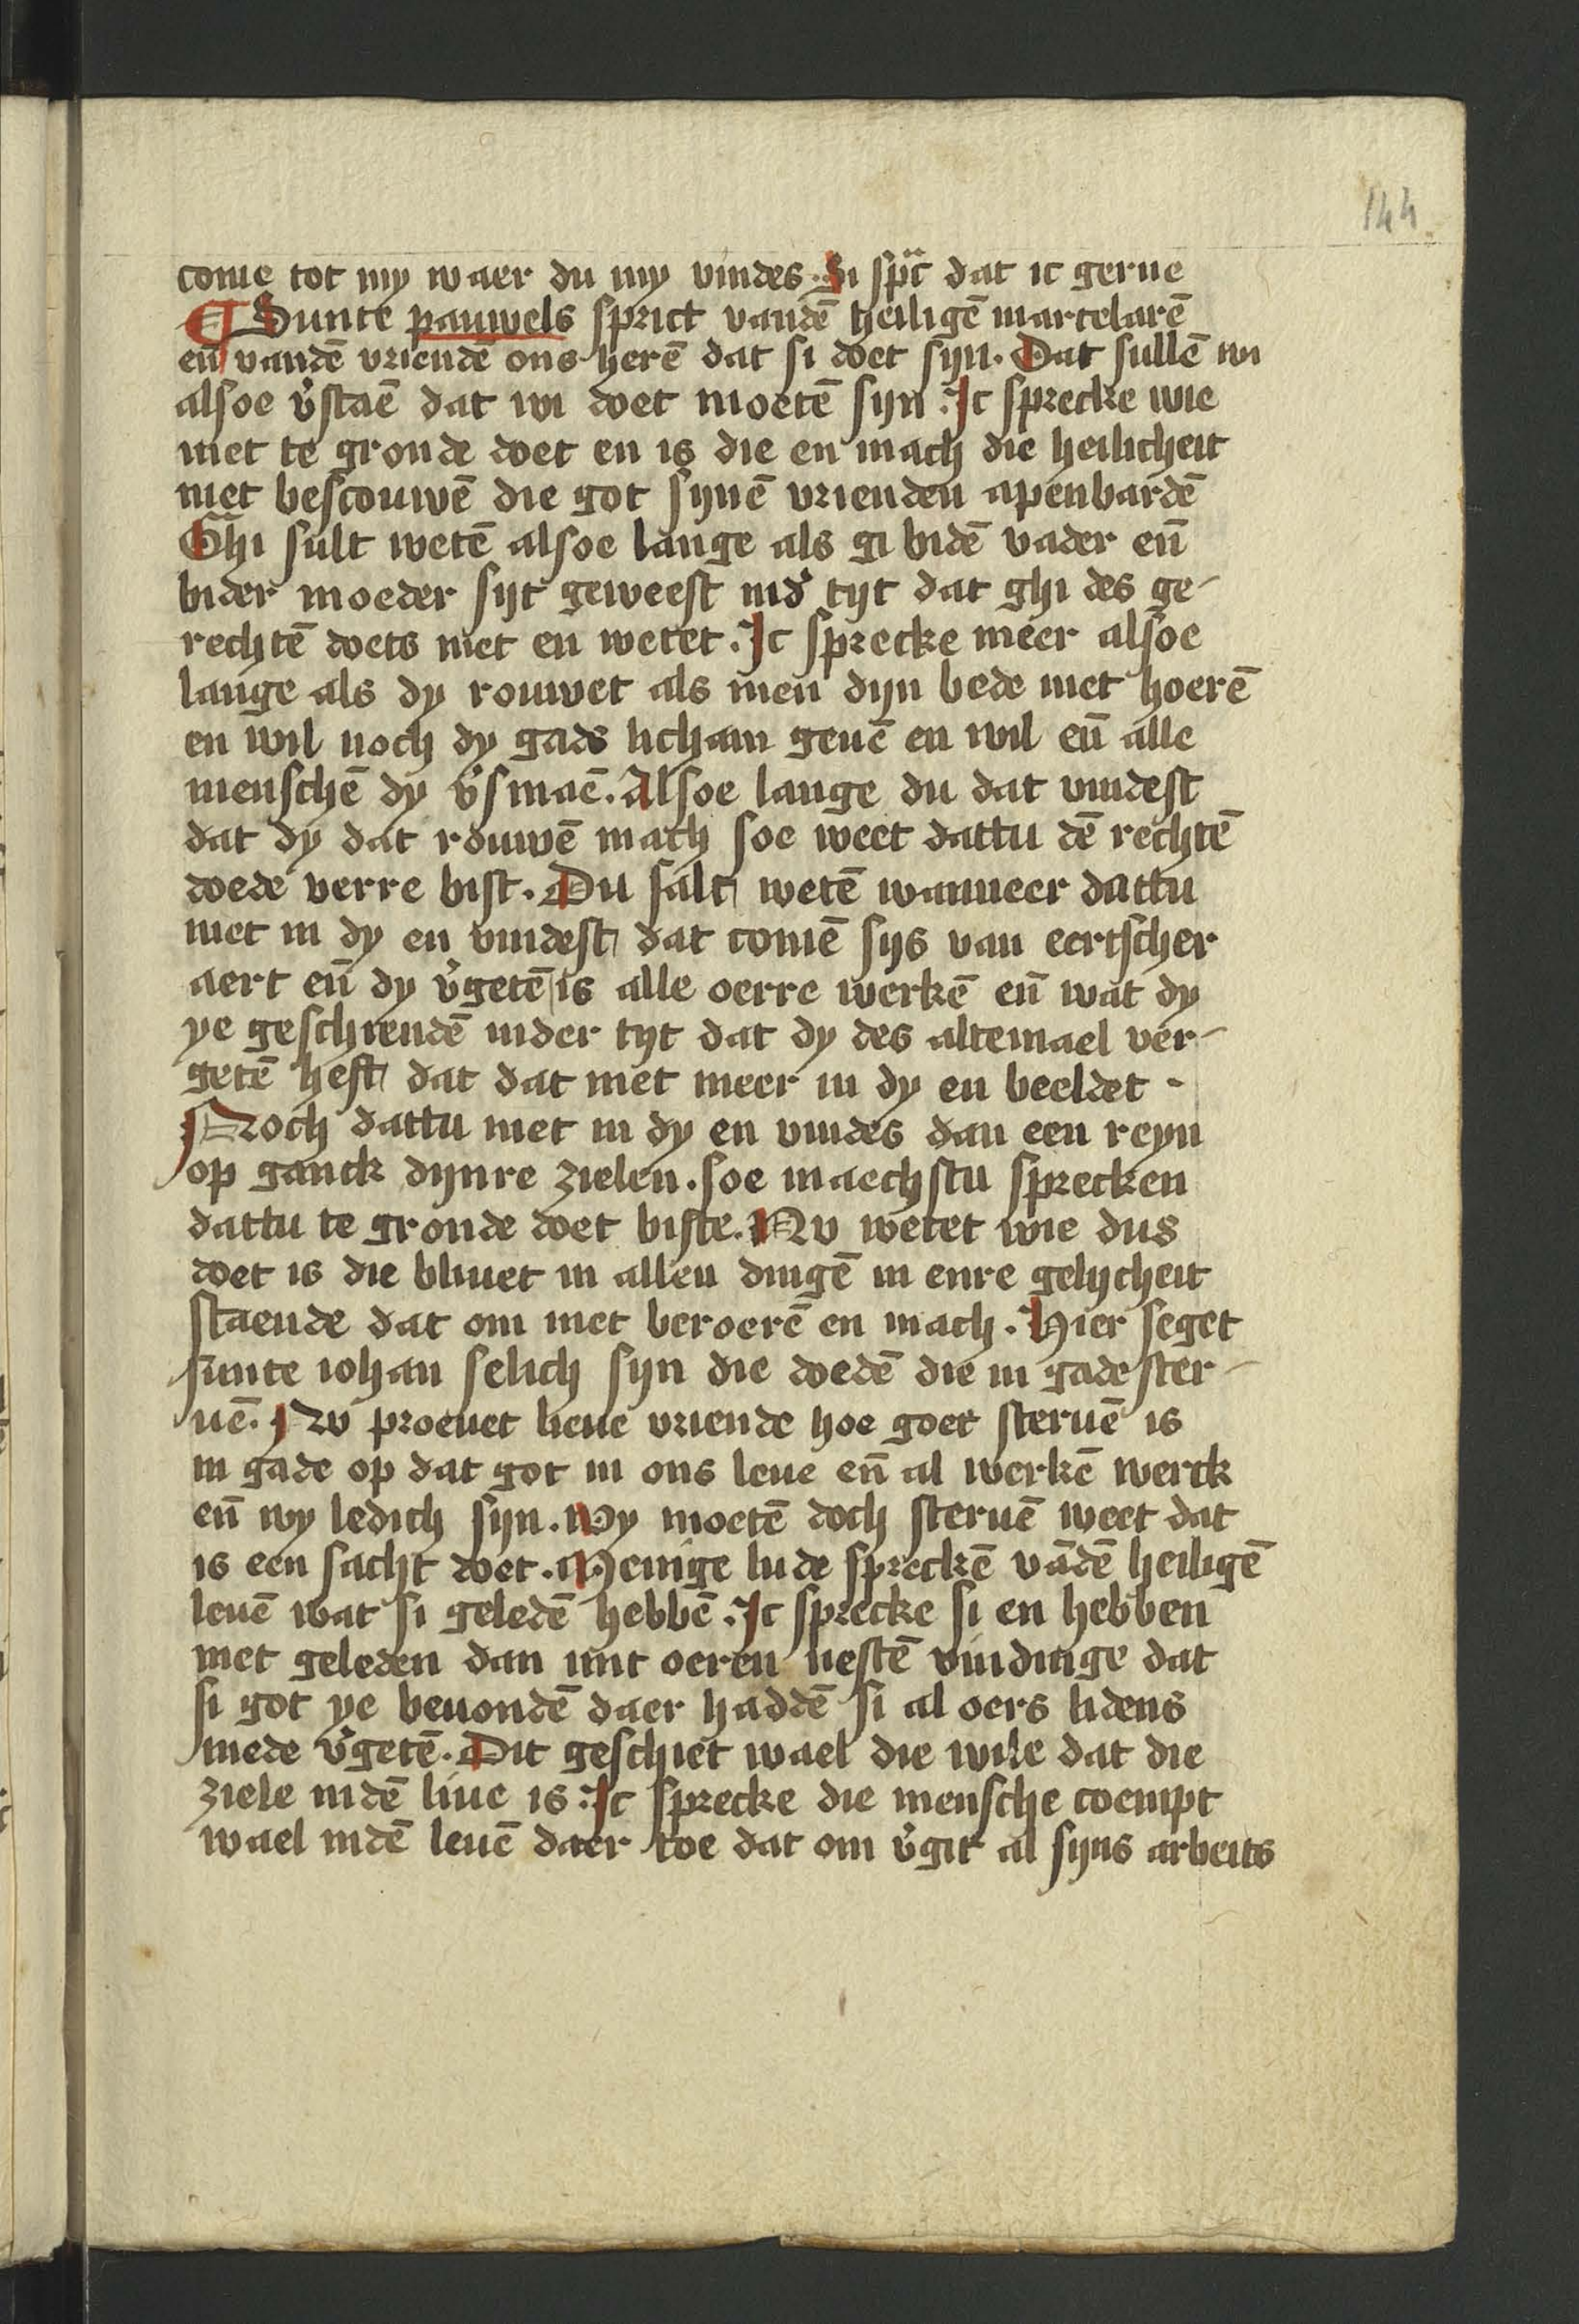 144
come tot my waer du my vindes. Si sprͨ dat ic gerne
¶ Sunte pauwels sprict vandē heiligē martelarē
en̄ vandē vriendē ons herē dat si doet sijn. Dat sullē wi
alsoe v̓staē dat wi doet moetē sijn. Ic sprecke wie
niet te gronde doet en is die en mach die heilicheit
niet bescouwē die got sijnē vrienden apenbardē
Ghi sult wetē alsoe lange als gi bidē vader en̄
bider moeder sijt geweest ind̓ tijt dat ghi des ge-
rechtē doets niet en wetet. Ic sprecke meer alsoe
lange als dy rouwet als men dijn bede niet hoerē
en wil noch dy gads licham geuē en wil en̄ alle
menschē dy v̓smaē. Alsoe lange du dat vindest
dat dy dat rouwē mach soe weet dattu dē rechtē
doede verre bist. Du salt wetē wanneer dattu
niet in dy en vindest dat comē sijs van eertscher
aert en̄ dy v̓getē is alle oerre werkē en̄ wat dy
ye geschiendē inder tijt dat dy des altemael ver-
getē hest dat dat niet meer in dy en beeldet -
Noch dattu niet in dy en vindes dan een reyn
op ganck dijnre zielen. soe maechstu sprecken
dattu te gronde doet biste. Nv wetet wie dus
doet is die bliuet in allen dingē in enre gelijcheit
staende dat om niet beroerē en mach. Hier seget
sunte iohan selich sijn die doedē die in gade ster-
uē. Nv proeuet lieue vriende hoe goet steruē is
in gade op dat got in ons leue en̄ al werkē werck
en̄ wy ledich sijn. Wy moetē doch steruē weet dat
is een sacht doet. Menige lude spreckē vādē heiligē
leuē wat si geledē hebbē. Ic sprecke si en hebben
niet geleden dan mit oeren iiestē vindinge dat
si got ye beuondē daer haddē si al oers lidens
mede v̓getē. Dit geschiet wael die wile dat die
ziele indē liue is. Ic sprecke die mensche coempt
wael indē leuē daer toe dat om v̓git al sijns arbeits